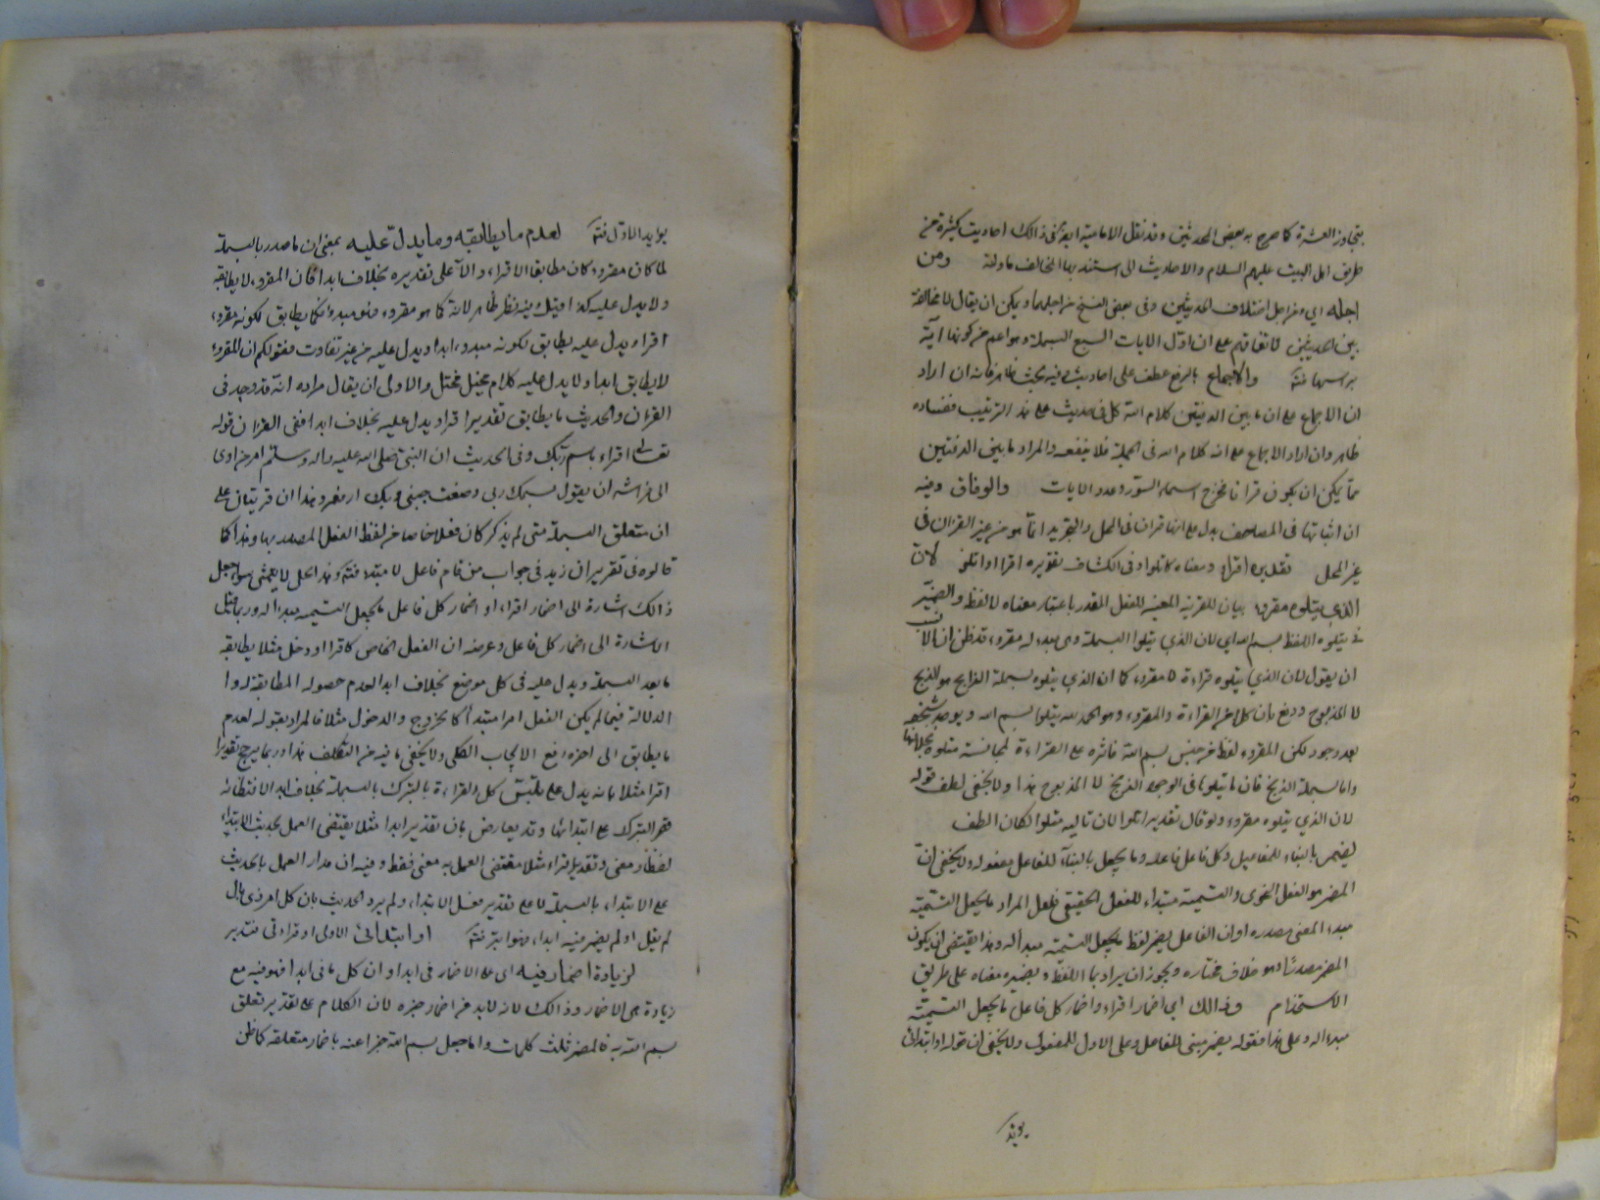 يتجاوز العشرة كما صرح به بعض المحدثين وقد نقل الامامية ايضا في ذالك احاديث كثيرة من
طريق اهل البيت عليهم السلام والاحاديث التى استند بها المخالف ماولة ومن
اجله اي ومن اجل اختلاف الحديثين وفى بعض النسخ من اجلهما ويمكن ان يقال لا مخالفة
بين الحديثين لاتفاقهم على ان اول الايات السبع البسملة وهو اعم من كونها آية
براسها والاجماع بالرفع عطف على احاديث وفيه بحث ظاهر فانه ان اراد
ان الاجماع على ان ما بين الدفتين كلام الله كل فى حديث على هذا الترتيب ففساده
ظاهر وان اراد الاجماع على انه كلام الله فى الجملة فلا ينفعه والمراد ما بين الدفتين
مما يمكن ان يكون قرانا فخرج اسماء السور وعدد الايات والوفاق وفيه
ان اثباتها فى المصاحف يدل على انها قران فى المحل والتجريد انما هو من غير القران فى
غير المحل تقديره اقراء ومعناه كاتلوا وفى الكشاف تقديره اقرا او اتلو لان
الذى يتلوه مقروء بيان للقرينة المعينة للفعل المقدر باعتبار معناه لا لفظ والضمير
فى يتلوه اللفظ بسم الله اي لان الذي يتلوا البسملة وهى مبدء له مقروء قد ظن ان الانسب
ان يقول لان الذي يتلوه قراءة لا مقروء كما ان الذي يتلوه بسملة الذابح هو الذبح
لا المذبوح ودفع بان كلا من القراءة والمقروء وهو الحمد لله يتلوا بسم الله ويوجد شخصه
بعد وجود لكن المقروء لفظ من جنس بسم الله فاثره على القراءة لمجانسة متلوه بخلافها
واما بسملة الذبح فان ما يتلوها فى الوجود الذبح لا المذبوح هذا ولا يخفى لطف قوله
لان الذي يتلوه مقروء ولو قال تقديره اتلوا لان تاليه متلوا لكان الطف
يضمر بالبناء للفاعل وكل فاعل فاعله وما يجعل بالبناء للفاعل مفعوله ولا يخفى ان
المضمر هو الفعل النحوى والتسمية مبتداء للفعل الحقيقى فلعل المراد ما يجعل التسمية
مبدء المعنى مصدره او ان الفاعل يضمر لفظ ما يجعل التسمية مبدأ له وهذا يقتضى ان يكون
المضمر مصدرا وهو خلاف مختاره ويجوز ان يراد بما اللفظ وبضميره معناه على طريق
الاستخدام وذالك اي اضمار اقراء واضمار كل فاعل ما يجعل التسمية
مبدء له وعلى هذا فقوله يضمر مبنى للفاعل وعلى الاول للمفعول ولا يخفى ان قوله او ابتدائى
يؤيد
يؤيد الاول لعدم ما يطابقه وما يدل عليه بمعنى ان ما صدر بالبسملة
لما كان مقروء كان مطابقا لاقراء ودالا على تقديره بخلاف ابدا فان المقروء لا يطابقه
ولا يدل عليه كذا قيل وفيه نظر ظاهر لانه كما هو مقروء فهو مبدء فكما يطابق لكونه مقروء
اقرا ويدل عليه يطابق لكونه مبدوء ابدا ويدل عليه من غير تفاوت فقولكم ان المقروء
لا يطابق ابدا ولا يدل عليه كلام مختل والاولى ان يقال مراده انه قد وجد فى
القران والحديث ما يطابق تقدير اقرا ويدل عليه بخلاف ابدا ففى القران قوله
تعالى اقراء باسم ربك وفى الحديث ان النبى صلى الله عليه واله وسلم امر من اوى
الى فراشه ان يقول بسمك ربى وضعت جنبى وبك ارفعه وهذا ان قرينتان على
ان متعلق البسملة متى لم يذكر كان فعلا خاصا من لفظ الفعل المصدر بها وهذا كما
قالوه فى تقرير ان زيد فى جواب من قام فاعل لا مبتدا وهذا الحل لا يتمشى سواء جعل
ذالك اشارة الى اضمار اقراء او اضمار كل فاعل ما يجعل التسمية مبدء له وربما قيل
الاشارة الى اضمار كل فاعل وغرضه ان الفعل الخاص كاقرا او دخل مثلا يطابقه
ما بعد البسملة ويدل عليه فى كل موضع بخلاف ابدا لعدم حصول المطابقة له وا
الدلالة فيما لم يكن الفعل امرا مبتدأ كالخروج والدخول مثلا فالمراد بقوله لعدم
ما يطابق الى اخره رفع الايجاب الكلى ولا يخفى ما فيه من التكلف هذا وربما يرجح تقدير
اقرا مثلا بانه يدل على تلبس كل القراءة بالتبرك بالبسملة بخلاف ابدا لاقتضائه
قصر التبرك على ابتدائها وقد يعارض بان تقدير ابدا مثلا يقتضى العمل بحديث الابتداء
لفظا ومعنى وتقدير اقراء مثلا مقتضى العمل به معنى فقط وفيه ان مدار العمل بالحديث
على الابتداء بالبسملة لا على تقدير فعل الابتداء ولم يرد الحديث بان كل امر ذى بال
لم يقل او لم يضمر فيه ابداء فهو ابتر او ابتدائى الاولى او قراءتى فتدبر
لزيادة اضمار فيه اى على الاضمار فى ابدا وان كل ما فى ابدا فهو فيه مع
زيادة هى الاضمار وذالك لانه لابد من اضمار خبره لان الكلام على تقدير تعلق
بسم الله به فالمضمر ثلث كلمات واما جعل بسم الله خبرا عنه باضمار متعلقه كما ظن